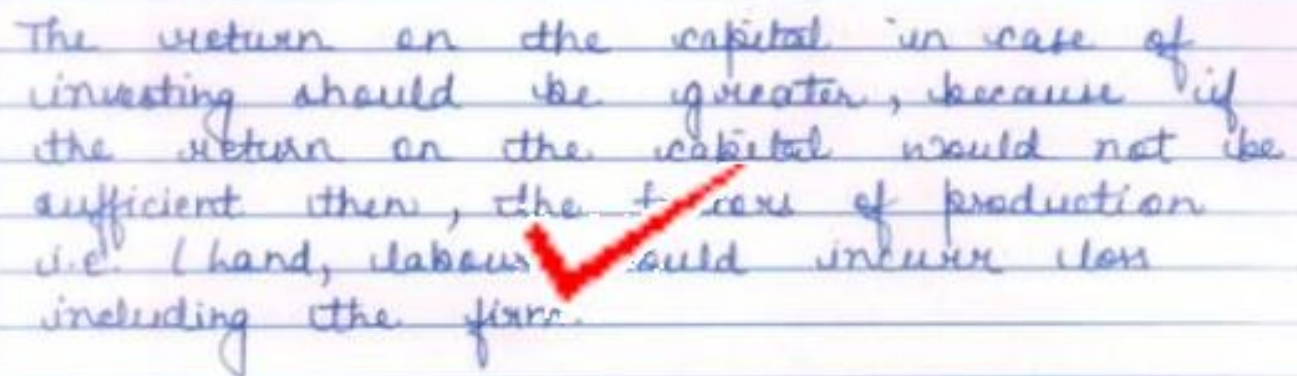 The return on the capital in case of
investing should be greater, because if
the return on the capital would not be
sufficient then, the of production
i.e. (hand, labour incurr loss
including the firm.